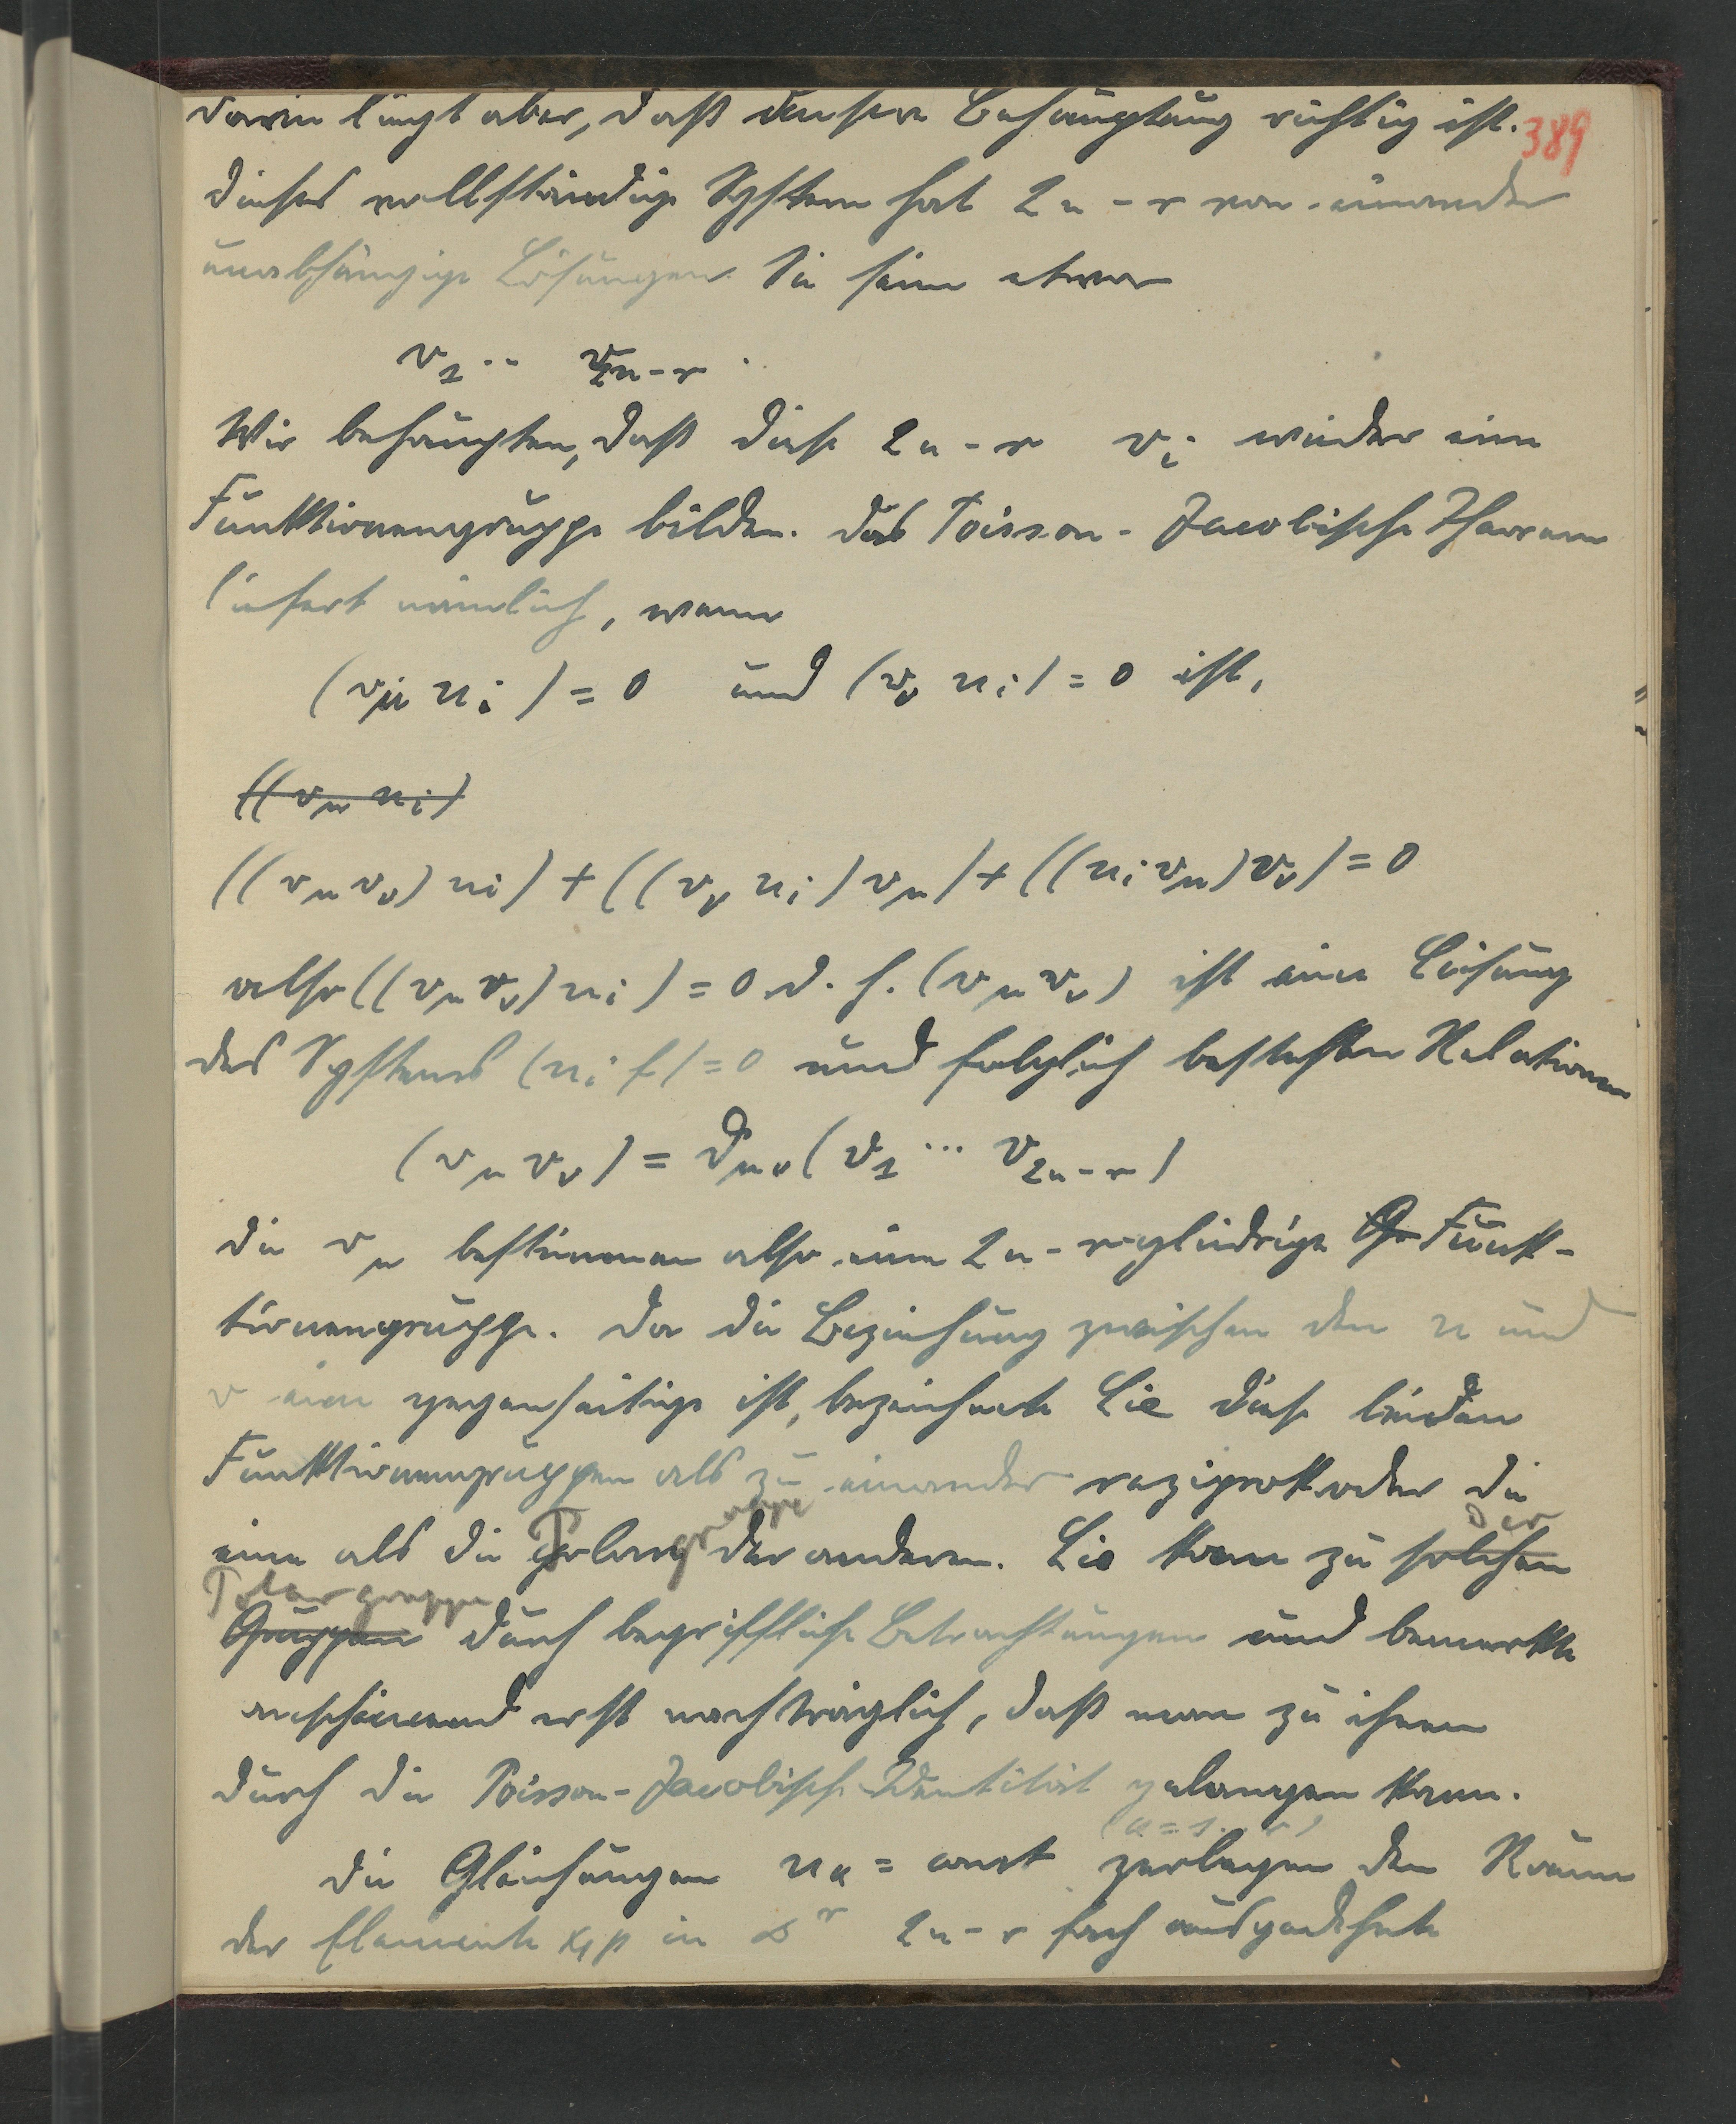 darin liegt aber, daß unsere Behauptung richtig ist.
389
Dieses vollständige System hat 2n-r von einander
unabhängige Lösungen. Sie seien etwa
v₁ .. v₂ₙ₋ᵣ.
Wir behaupten, daß diese 2n-r vᵢ wieder eine
Funktionengruppe bilden. Das Poisson-Jacobische Theorem
liefert nämlich, wenn
(v_μ uᵢ) = 0 und (v_ν uᵢ) = 0 ist,
((v_μ uᵢ)
((v_μ v_ν) uᵢ) + ((v_ν uᵢ) v_μ) + ((uᵢ v_μ) v_ν) = 0
also ((v_μ v_ν) uᵢ) = 0 d. h. (v_μ v_ν) ist eine Lösung
des Systems (uᵢ f) = 0 und folglich bestehen Relationen
(v_μ v_ν) = ϑ_μν (v₁ ... v₂ₙ₋ᵣ)
Die v_μ bestimmen also eine 2n-r gliedrige Gr Funk-
tionengruppe. Da die Beziehung zwischen den u und
v eine gegenseitige ist, bezeichnete Lie diese beiden
Funktionengruppen als zu einander reziprok oder die
eine als die Polargruppe der anderen. Lie kam zu solchen der
Gruppen Polargruppe durch begriffliche Betrachtungen und bemerkte
anscheinend erst nachträglich, daß man zu ihnen
durch die Poisson-Jacobische Identität gelangen kann.
(α = 1 .. r)
Die Gleichungen u_α = const zerlegen den Raum
der Elemente x, p in ∞ʳ 2n-r fach ausgedehnte